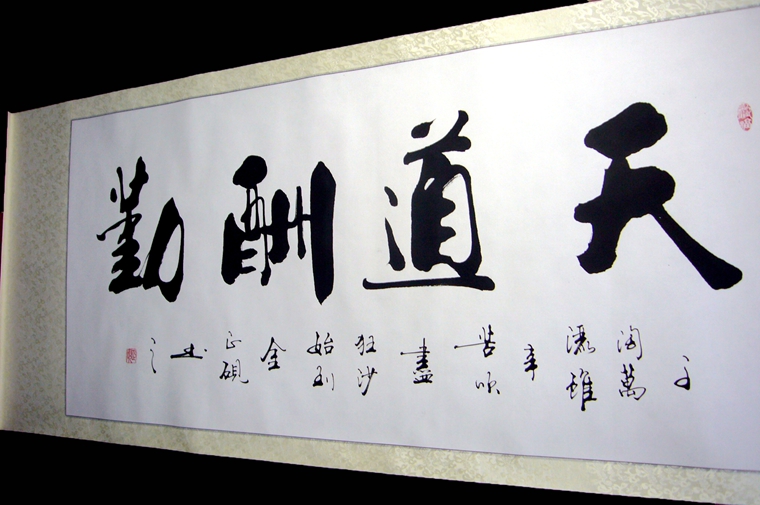 天道酬勤
千淘萬漉雖辛苦吹盡狂沙始到金
正硯書之